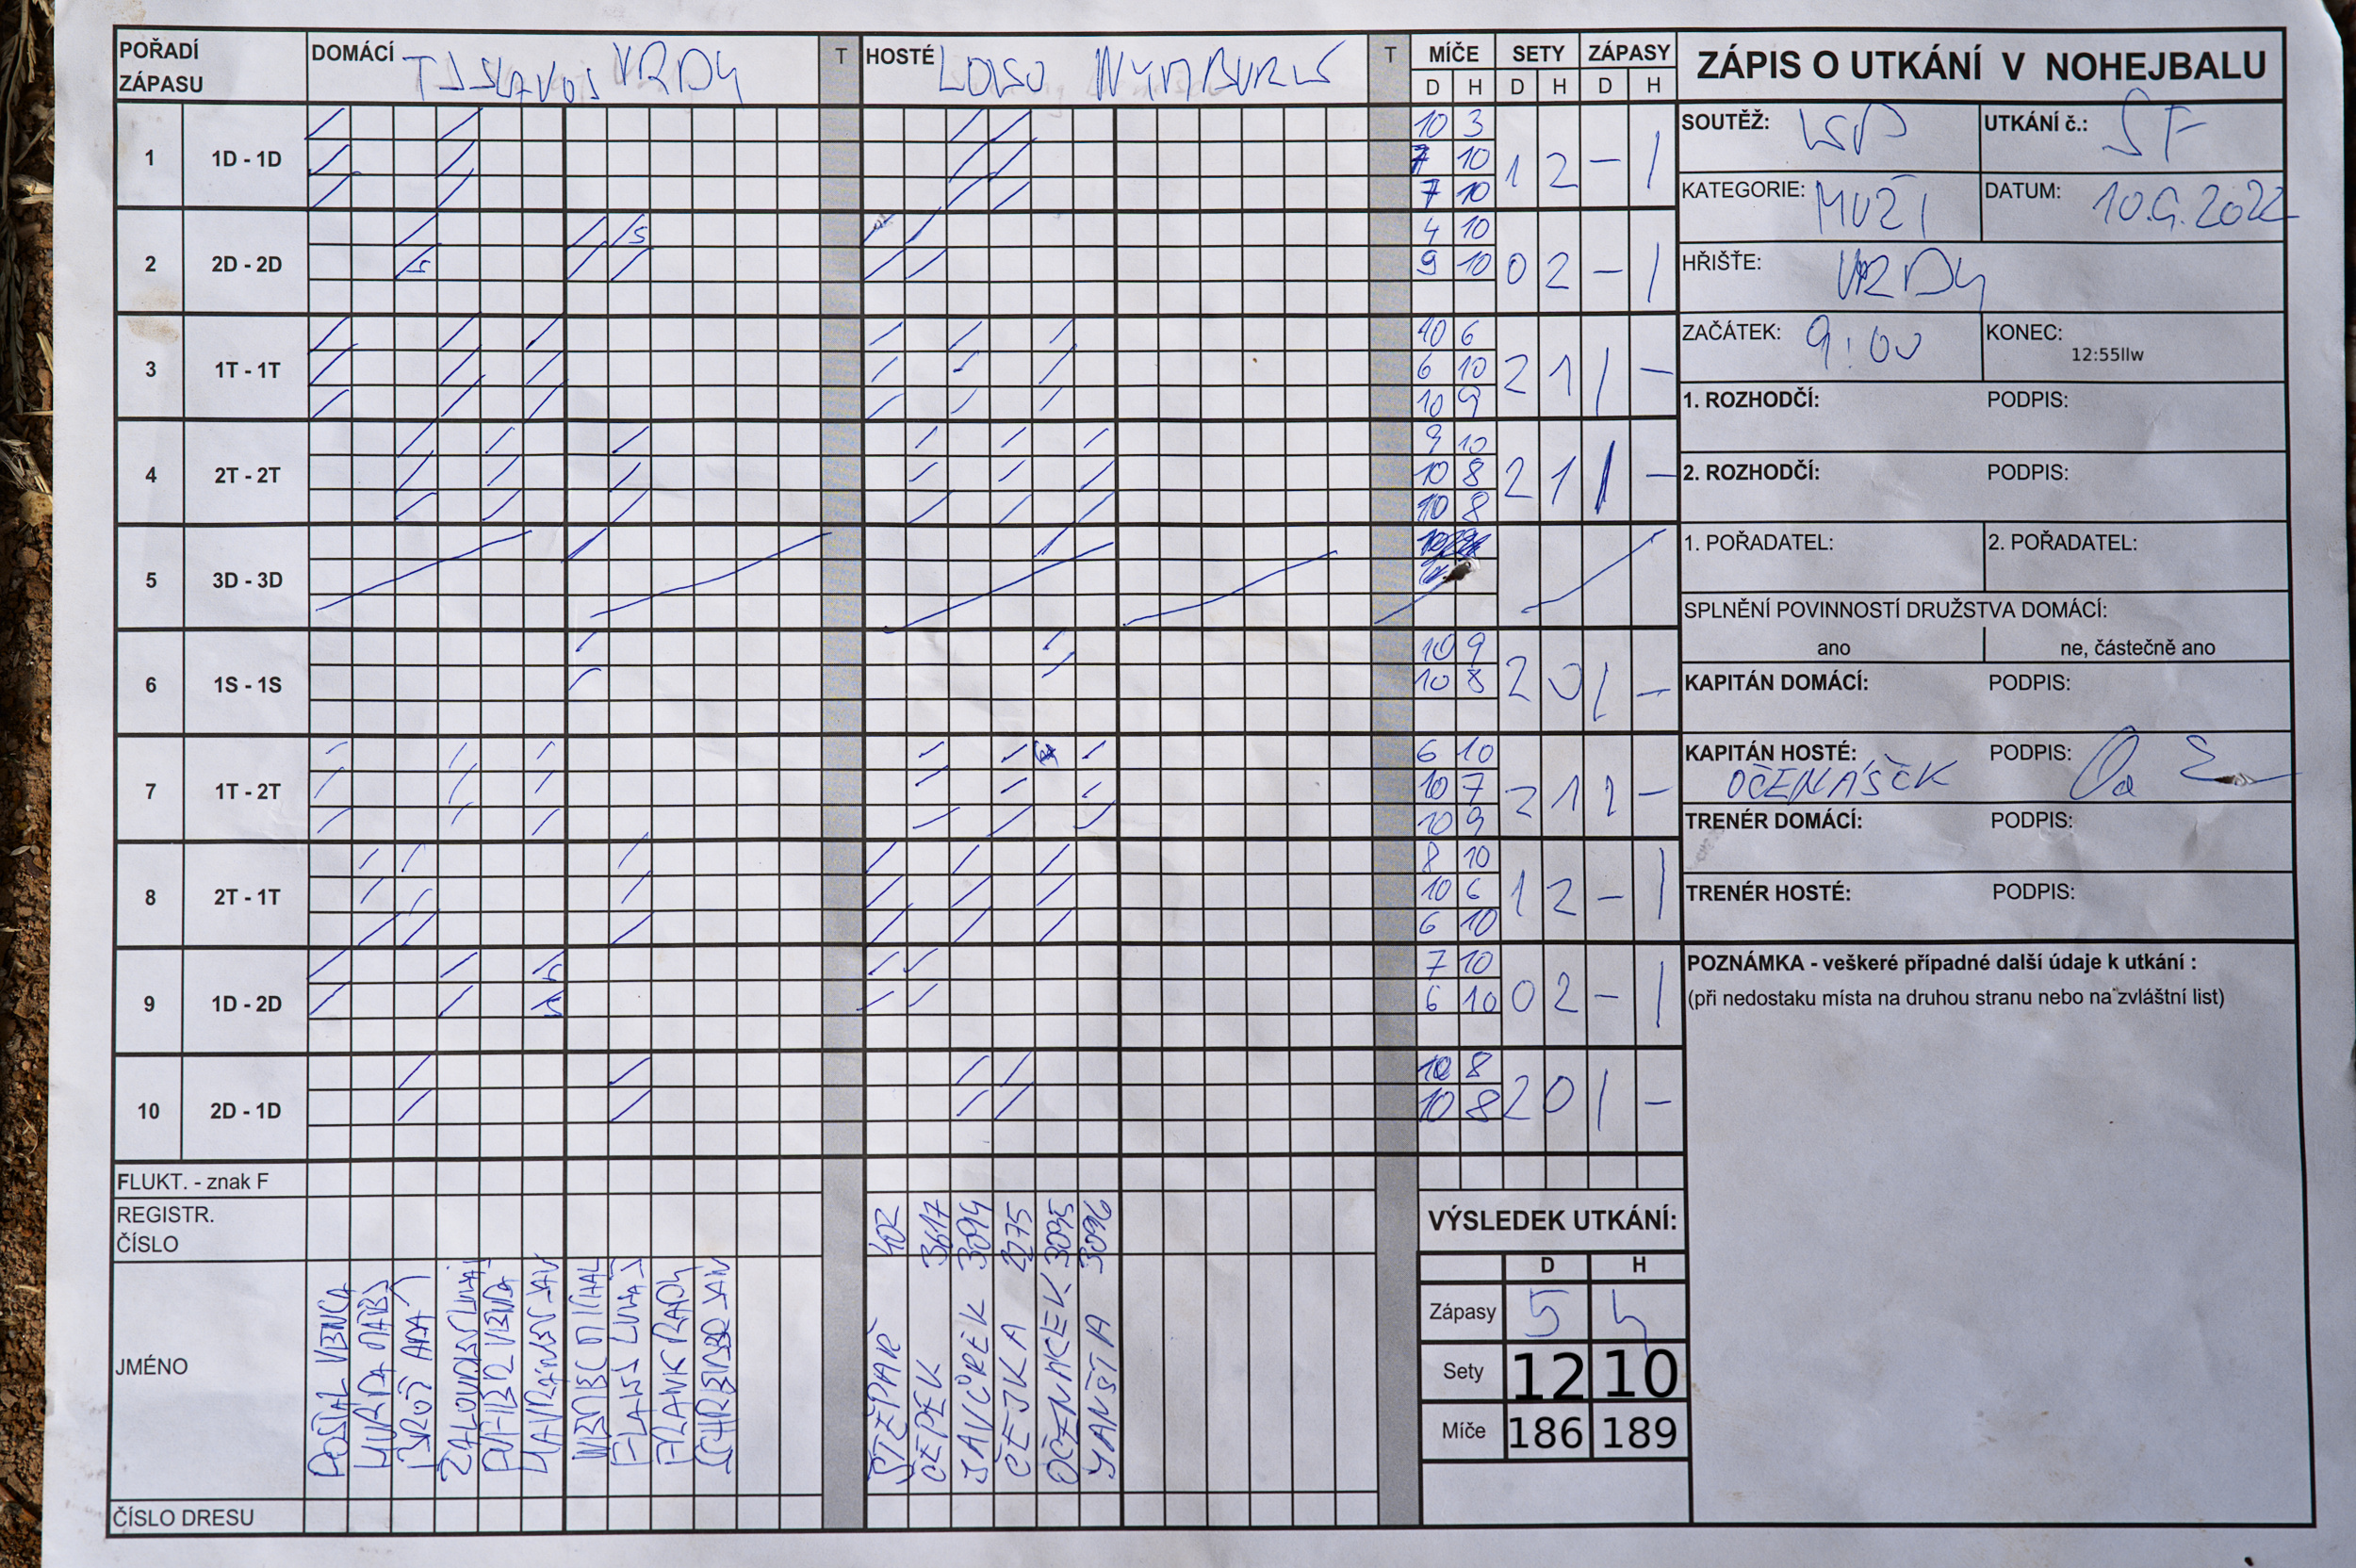 POŘADÍ ZÁPASU DOMÁCÍ TJ SLAVOJ VRDY T HOSTÉ NYMBURK T MÍČE SETY ZÁPASY
D H D H D H
ZÁPIS O UTKÁNÍ V NOHEJBALU
SOUTĚŽ: UTKÁNÍ č.: SF
KATEGORIE: MUŽI DATUM: 10.9.2022
HŘIŠTĚ: VRDY
ZAČÁTEK: 9:00 KONEC: 12:55llw
1. ROZHODČÍ: PODPIS:
2. ROZHODČÍ: PODPIS:
1. POŘADATEL: 2. POŘADATEL:
SPLNĚNÍ POVINNOSTÍ DRUŽSTVA DOMÁCÍ:
ano ne, částečně ano
KAPITÁN DOMÁCÍ: PODPIS:
KAPITÁN HOSTÉ: PODPIS:
OČENÁŠEK
TRENÉR DOMÁCÍ: PODPIS:
TRENÉR HOSTÉ: PODPIS:
POZNÁMKA - veškeré případné další údaje k utkání :
(při nedostaku místa na druhou stranu nebo na zvláštní list)
1 1D - 1D 1 2 - 1
10 3
7 10
7 10
2 2D - 2D 0 2 - 1
4 10
9 10
3 1T - 1T 2 1 1 -
10 6
6 10
10 9
4 2T - 2T 2 1 1 -
9 10
10 8
10 8
5 3D - 3D
6 1S - 1S 2 0 1 -
10 9
10 8
7 1T - 2T 2 1 1 -
6 10
10 7
10 9
8 2T - 1T 1 2 - 1
8 10
10 6
6 10
9 1D - 2D 0 2 - 1
7 10
6 10
10 2D - 1D 2 0 1 -
10 8
10 8
FLUKT. - znak F
REGISTR. ČÍSLO 402 3617 3094 2275 3095 3096
JMÉNO
ŠTĚPAŘ
ČEPEK
ČEJKA
YANŠTA
ČÍSLO DRESU
VÝSLEDEK UTKÁNÍ:
D H
Zápasy 5 4
Sety 12 10
Míče 186 189